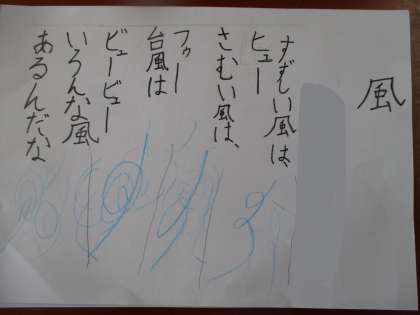 風
すずしい風は、
ヒュー
さむい風は、
フゥー
台風は
ビュービュー
いろんな風
あるんだな